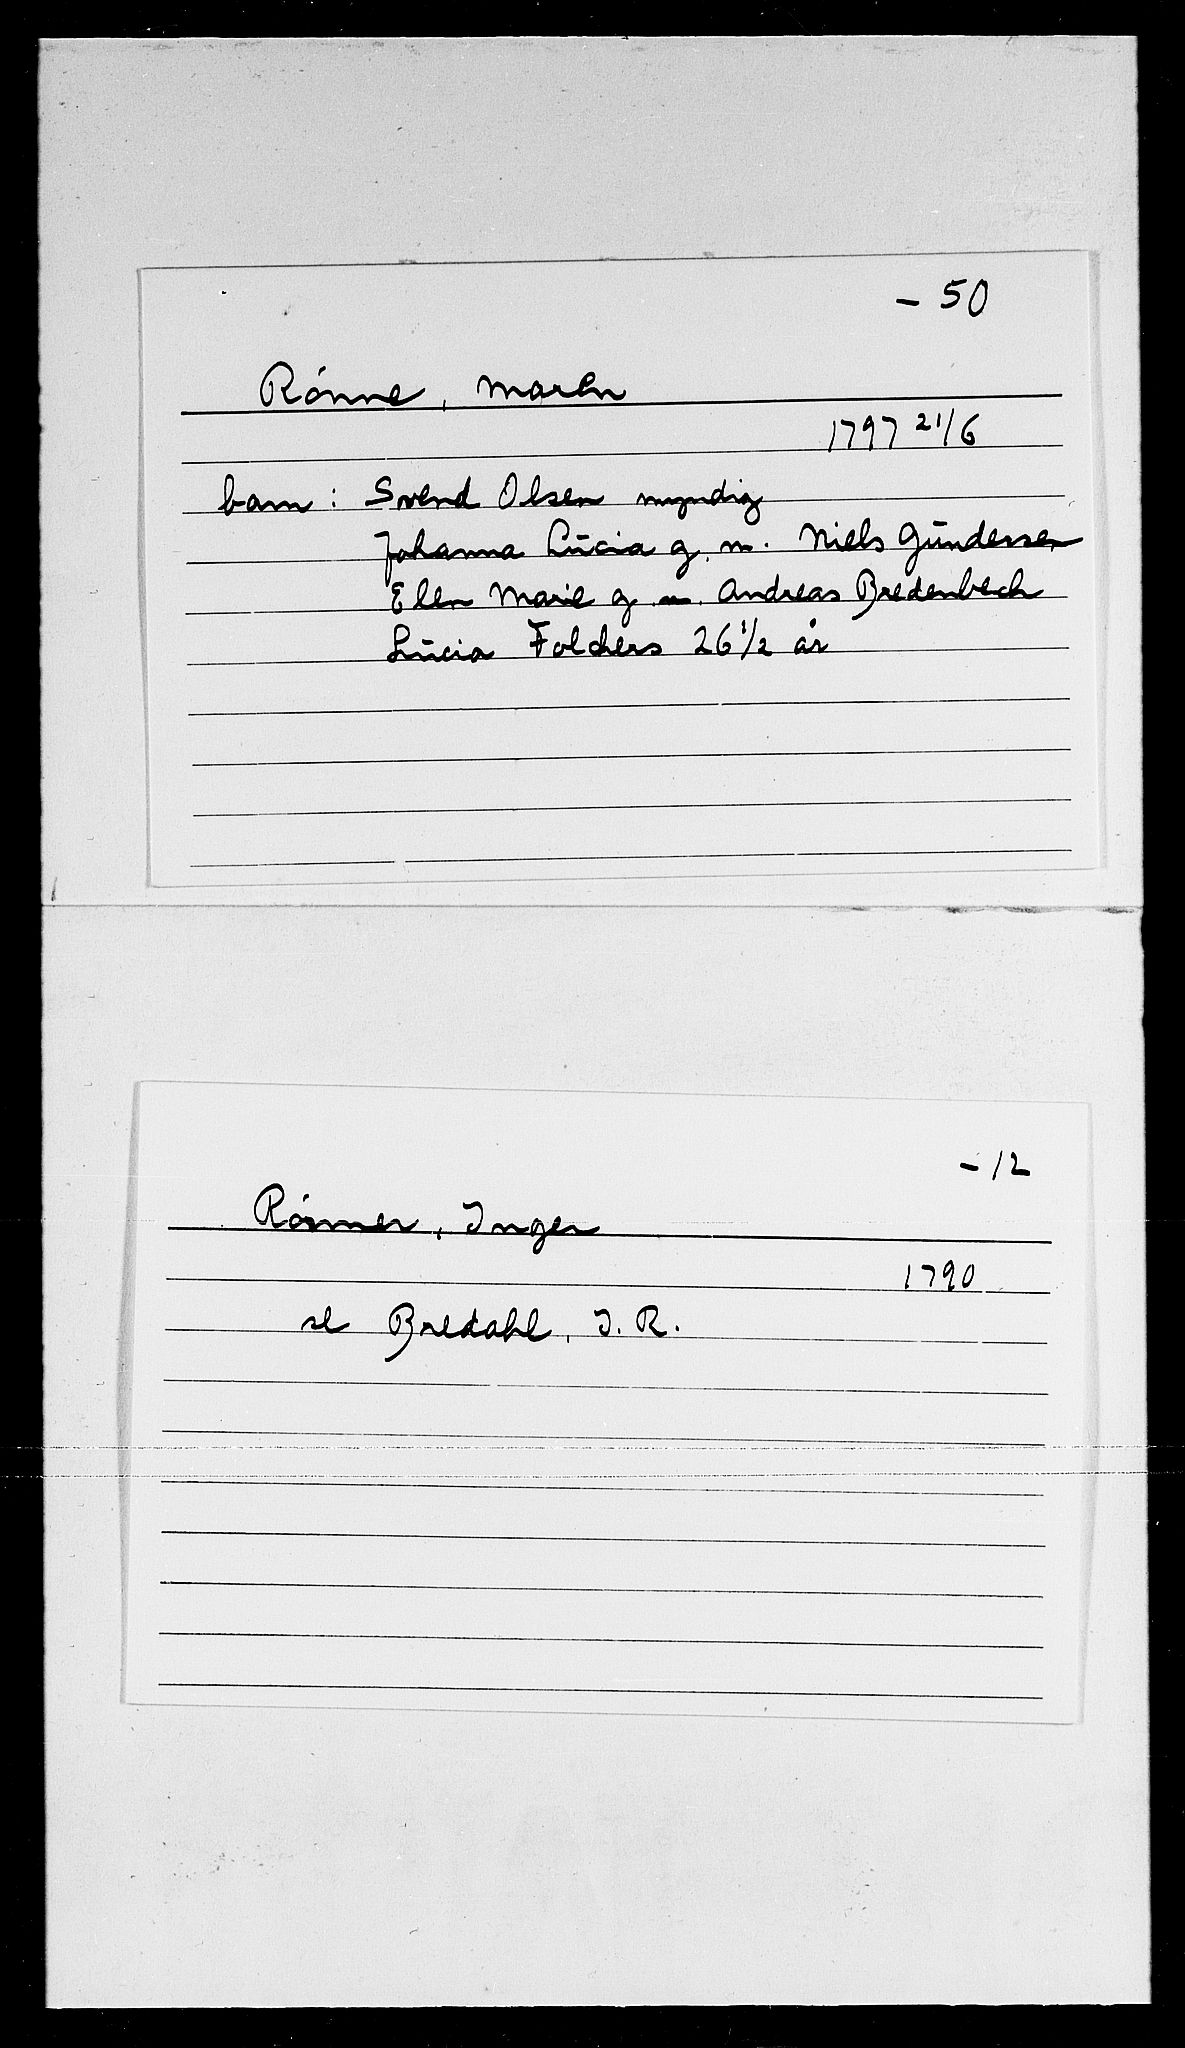 - 50
Rónne, Maren
1797 21/6
barn: Svend Olsen myndig
Johanna Lūcia g. m. Niels Gūndersen
Elen Marie g. m. Andreas Bredenbech
Lūcia Folchers 26 1/2 år
- 12
Rómer, Inger
1790
se Bredahl, I. R.